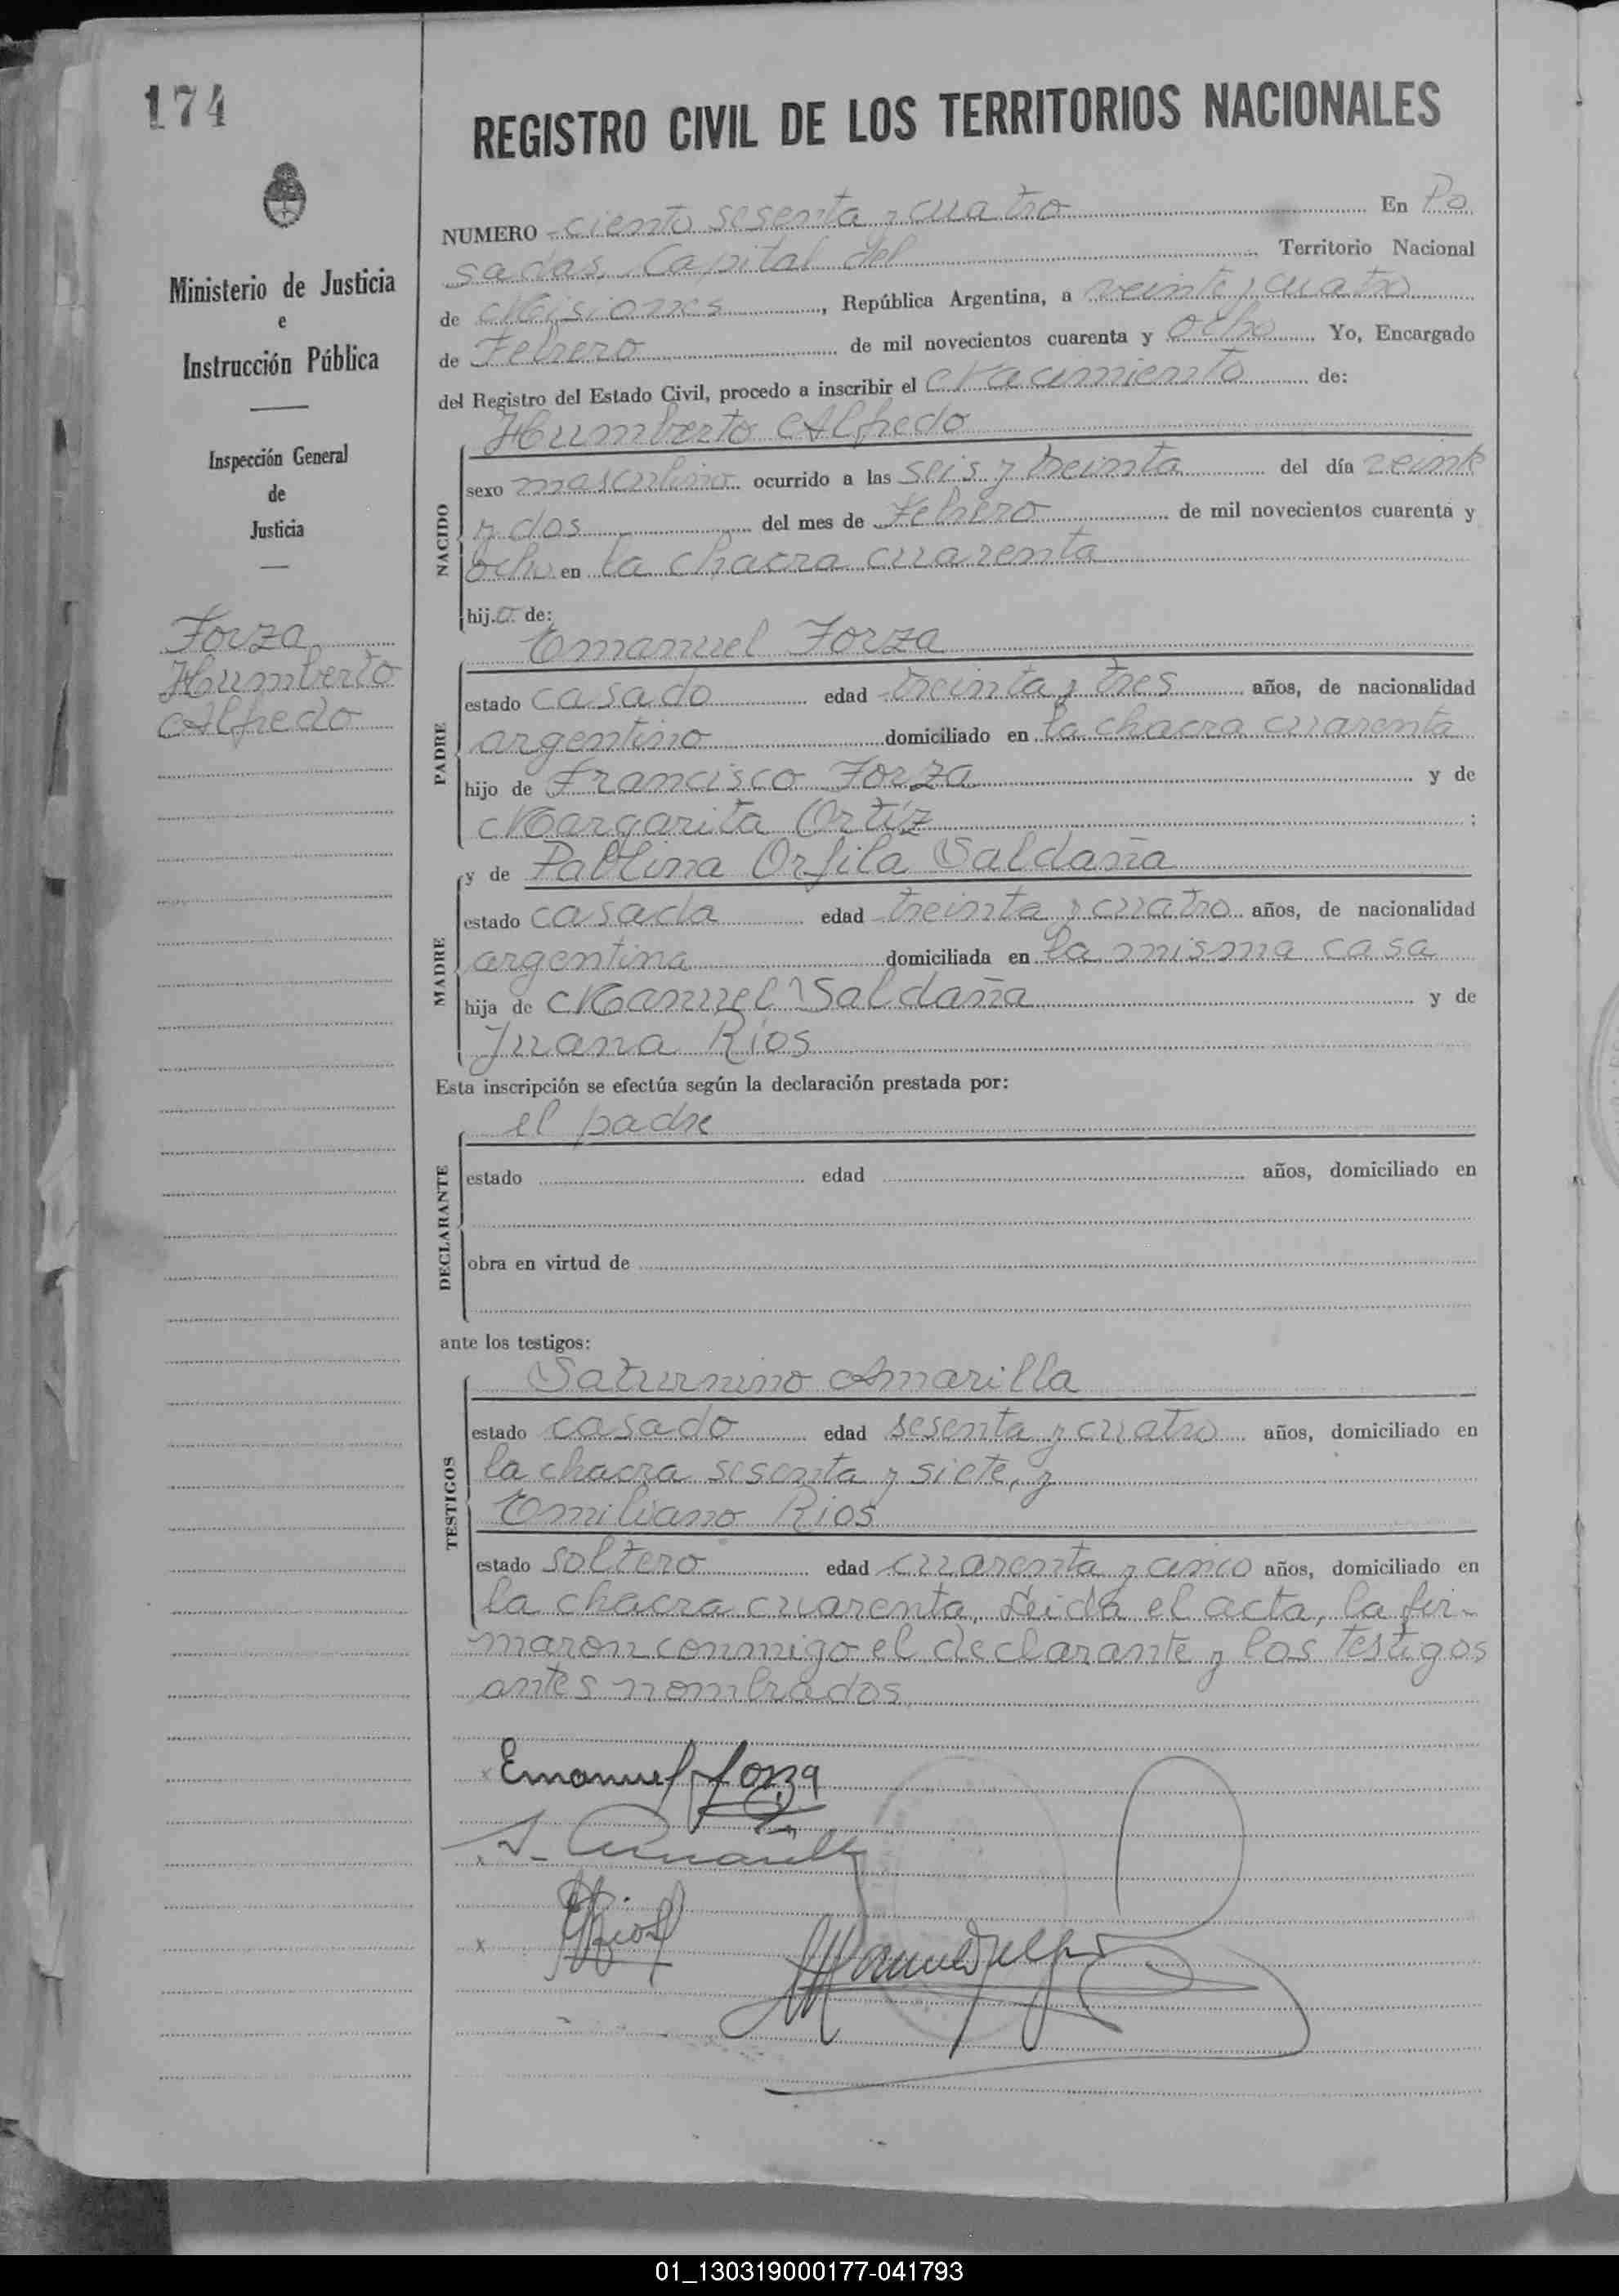 174
REGISTRO CIVIL DE LOS TERRITORIOS NACIONALES
NUMERO ciento sesenta y cuatro En Po
sadas, Capital del Territorio Nacional
de Misiones, República Argentina, a veinte y cuatro
de Febrero de mil novecientos cuarenta y ocho Yo, Encargado
del Registro del Estado Civil, procedo a inscribir el Nacimiento de:
Ministerio de Justicia
e
Instrucción Pública
Inspección General
de
Justicia
Forza
Humberto
Alfredo
NACIDO
Humberto Alfredo
sexo masculino ocurrido a las seis y treinta del día veinte
y dos del mes de Febrero de mil novecientos cuarenta y
ocho en la chacra cuarenta
hijo de:
PADRE
Emanuel Forza
estado casado edad treinta y tres años, de nacionalidad
argentino domiciliado en la chacra cuarenta
hijo de Francisco Forza y de
Margarita Ortíz ;
MADRE
y de Pablina Orfila Saldaña
estado casada edad treinta y cuatro años, de nacionalidad
argentina domiciliada en la misma casa
hija de Manuel Saldaña y de
Juana Ríos
Esta inscripción se efectúa según la declaración prestada por:
DECLARANTE
el padre
estado edad años, domiciliado en
obra en virtud de
ante los testigos:
TESTIGOS
Saturnino Amarilla
estado casado edad sesenta y cuatro años, domiciliado en
la chacra sesenta y siete, y
Emiliano Rios
estado soltero edad cuarenta y cinco años, domiciliado en
la chacra cuarenta, Leida el acta, la fir-
maron conmigo el declarante y los testigos
antes nombrados
x Emanuel Forza
x S. Amarilla
x E Rios
01_130319000177-041793